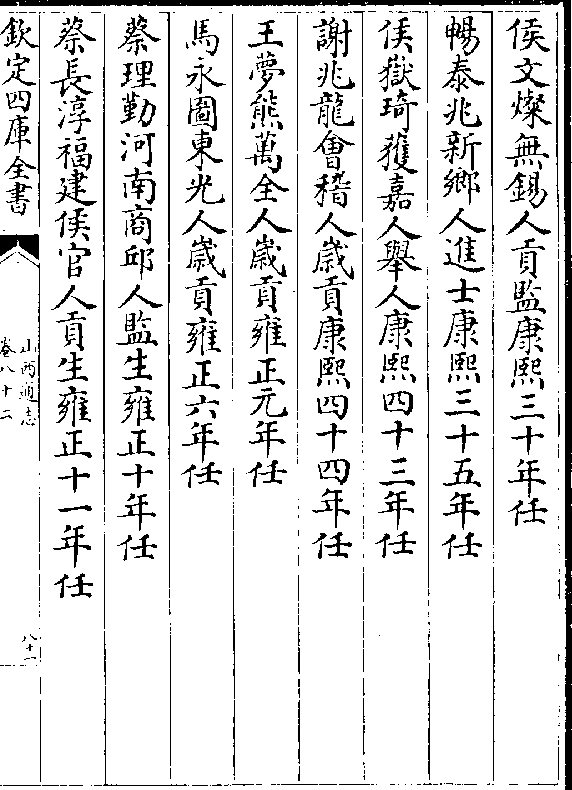 侯文燦無錫人貢監康熙三十年任
暢泰兆新鄉人進士康熙三十五年任
侯嶽琦獲嘉人舉人康熙四十三年任
謝兆龍會稽人歲貢康熙四十四年任
王夢熊萬全人歲貢雍正元年任
馬永圖東光人歲貢雍正六年任
蔡理勤河南商邱人監生雍正十年任
蔡長淳福建侯官人貢生雍正十一年任
欽定四庫全書
山西通志
卷八十二
八十一